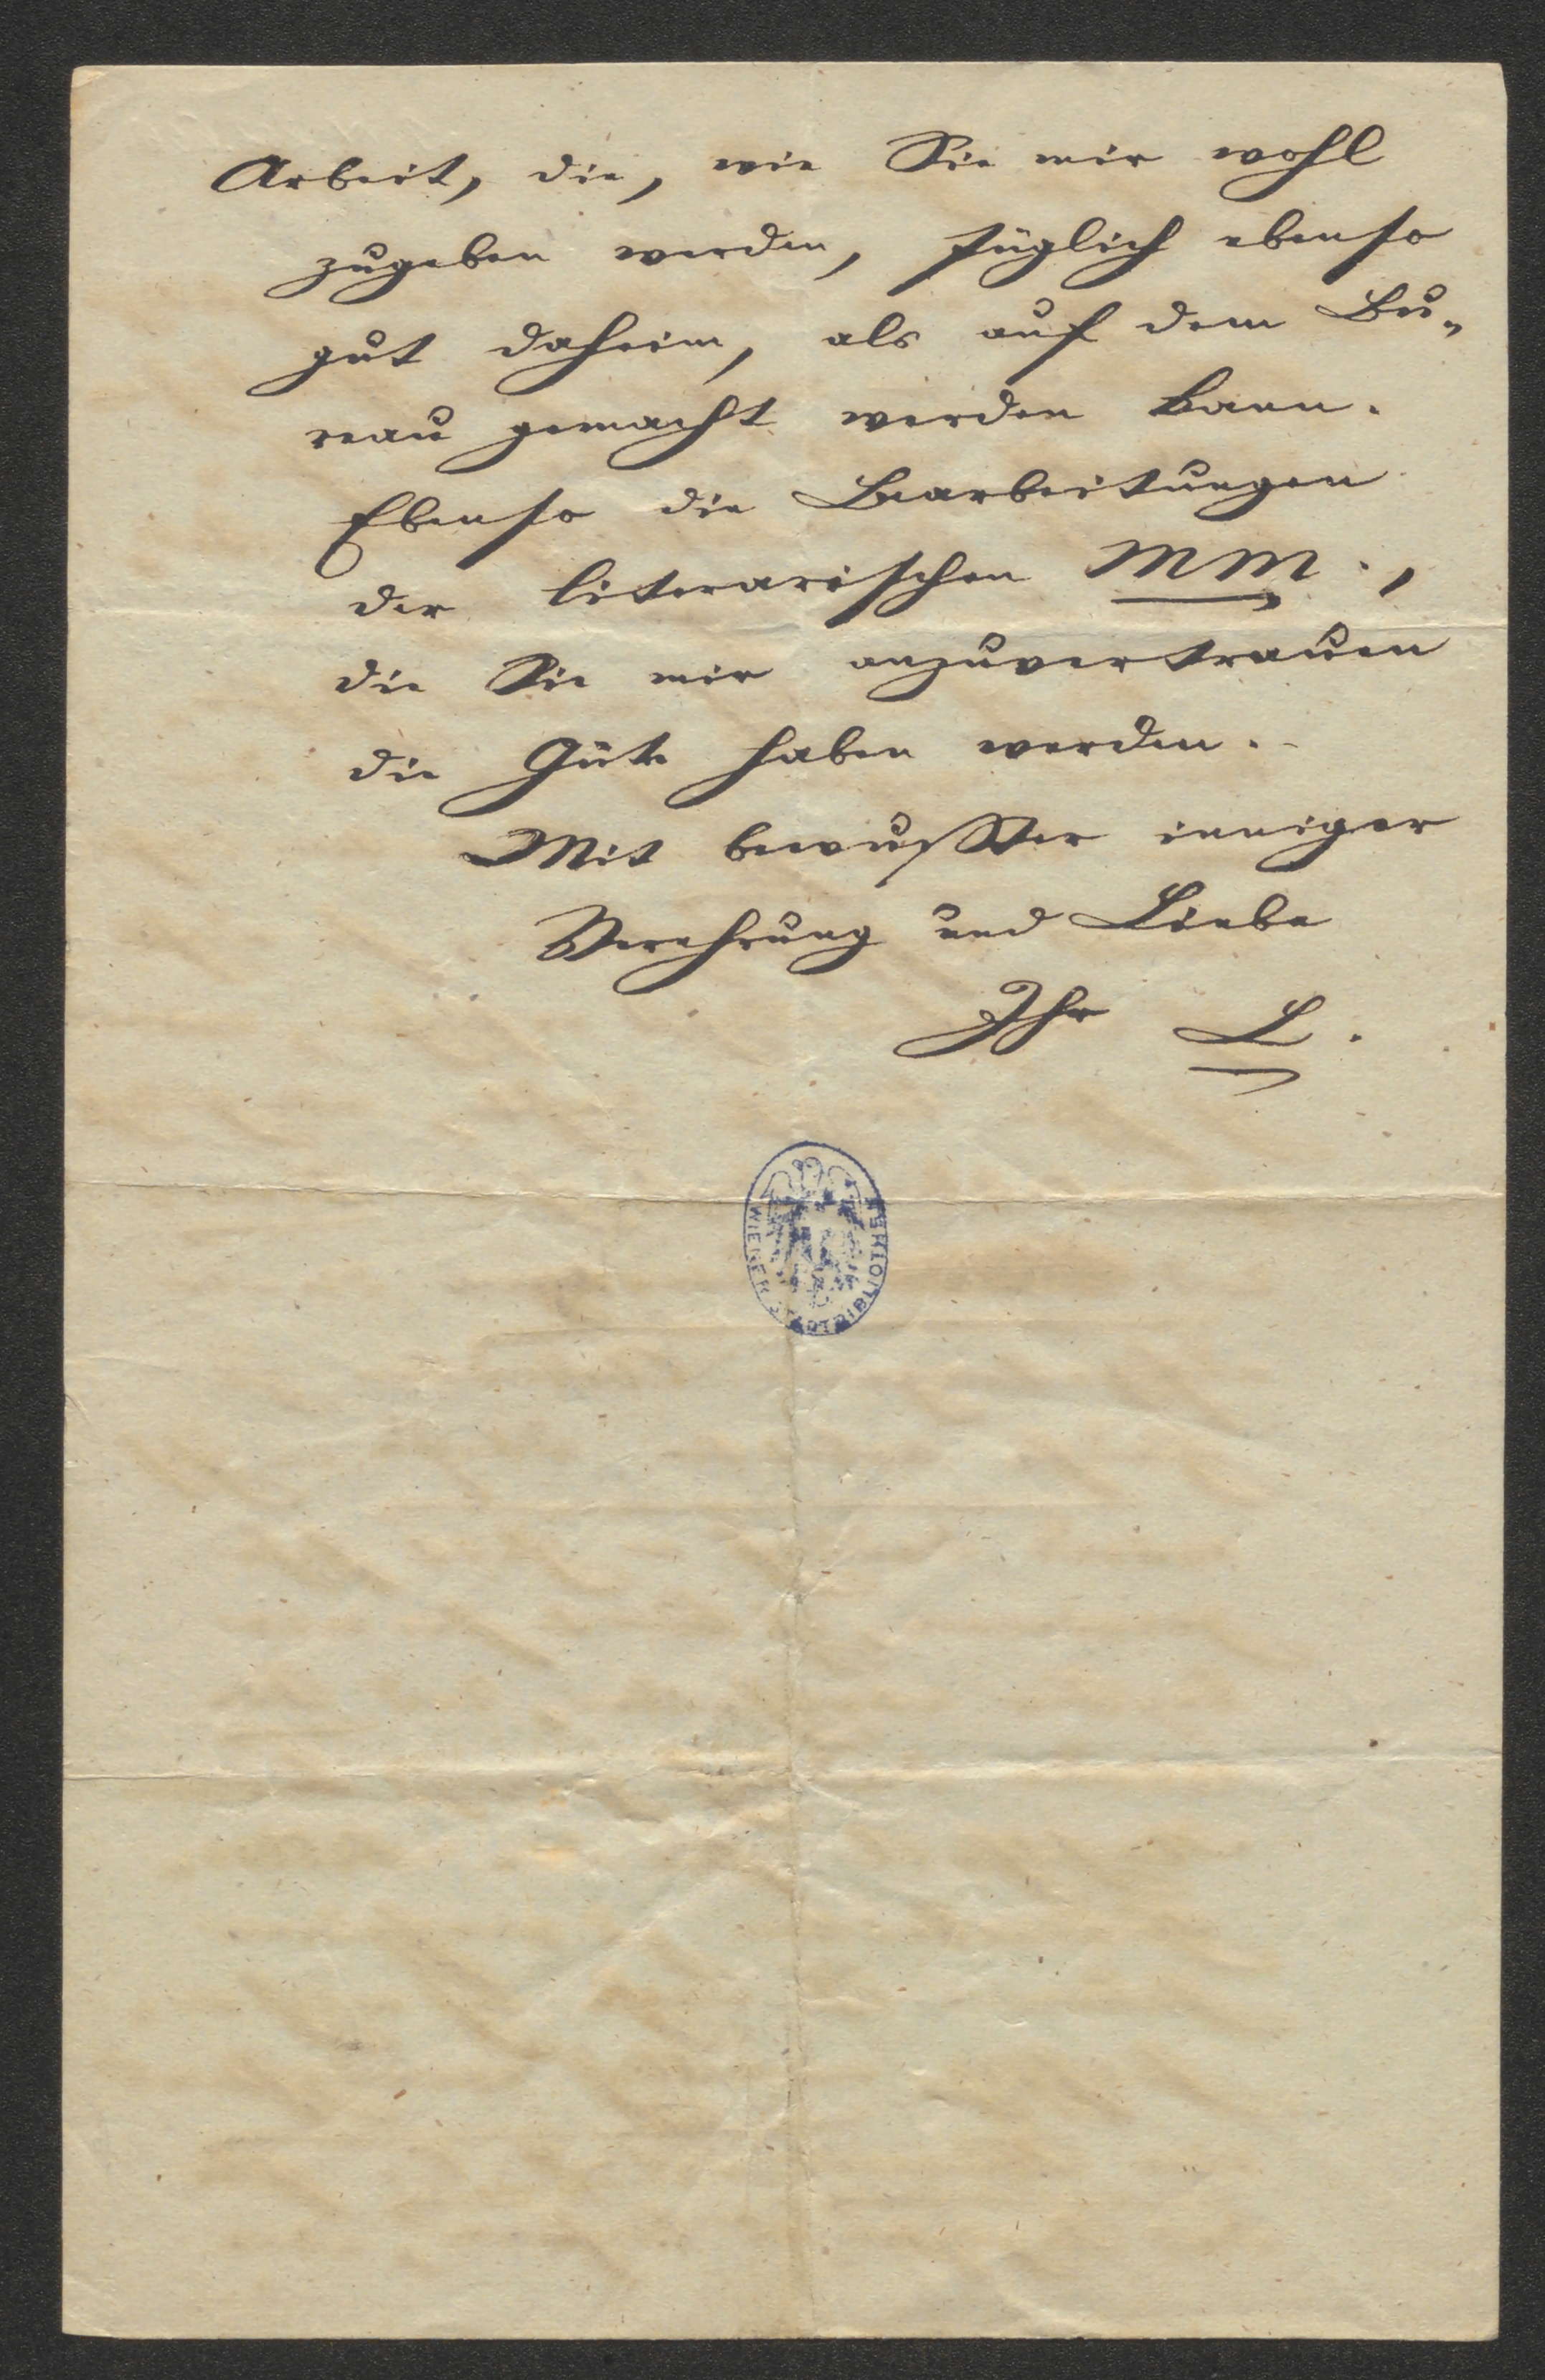 Arbeit, die, wie Sie mir wohl
zugeben werden, füglich ebenso
gut daheim, als auf dem Bu-
reau gemacht werden kann.
Ebenso die Bearbeitungen
der literarischen MM.,
die Sie mir anzuvertrauen
die Güte haben werden.
Mit bewußter inniger
Verehrung und Liebe
Ihr L.
WIENER STADTBIBLIOTHEK